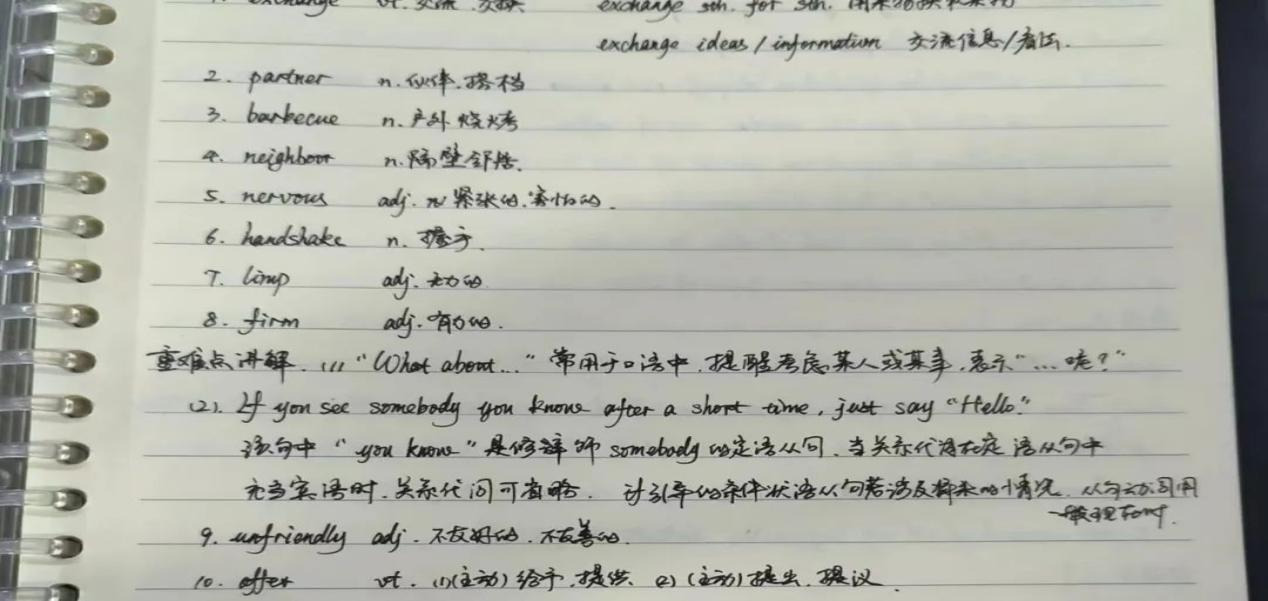 1. exchange vt. 交流.交换 exchange sth. for sth.
exchange ideas / information 交流信息/看法.
2. partner n. 伙伴.搭档
3. barbecue n. 户外烧烤
4. neighbour n. 隔壁邻居.
5. nervous adj. 紧张的.害怕的.
6. handshake n. 握手.
7. limp adj. 无力的
8. firm adj. 有力的.
重难点讲解. (1) "What about..." 常用于口语中.提醒考虑某人或某事.表示"...呢?"
(2). If you see somebody you know after a short time, just say "Hello."
该句中 "you know" 是修 饰 somebody 的定语从句.当关系代词在定 语从句中
充当宾语时.关系代词可省略. 引导的条件状语从句若涉及将来的情况.从句动词用
一般现在时.
9. unfriendly adj. 不友好的.不友善的.
10. offer vt. (1)(主动)给予.提供. (2)(主动)提出.提议.